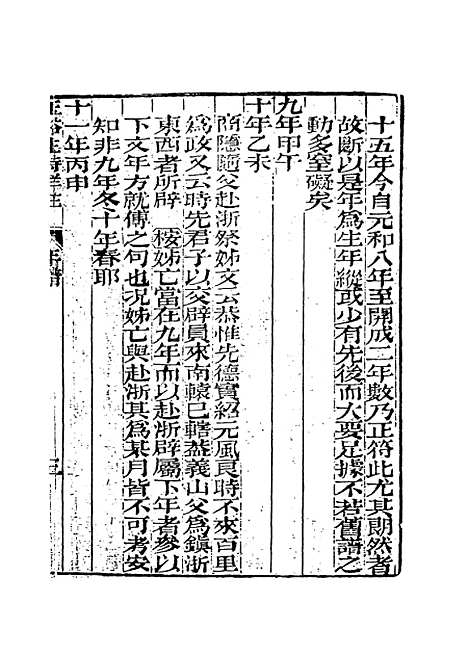 十五年今自元和八年至開成二年數乃正符此尤其朗然者
故斷以是年為生年縱或少有先後而大要足據不若舊譜之
動多窒礙矣
九年甲午
十年乙未
商隱隨父赴浙祭姊文云恭惟先德實紹元風良時不來百里
為政又云時先君子以交辟員來南轅已轄蓋義山父為鎮浙
東西者所辟 按姊亡當在九年而以赴浙辟屬下年者參以
下文年方就傅之句也况姊亡與赴浙其為某月皆不可考安
知非九年冬十年春耶
十一年丙申
年譜 三